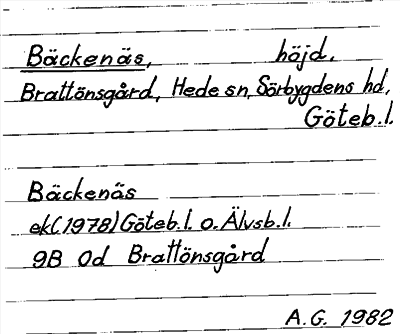 Bäckenäs, höjd.
Brattönsgård, Hede sn, Sörbygdens hd,
Göteb.l.
Bäckenäs
ek(1978)Göteb.l. o. Älvsb.l.
9B 0d Brattönsgård
A.G. 1982